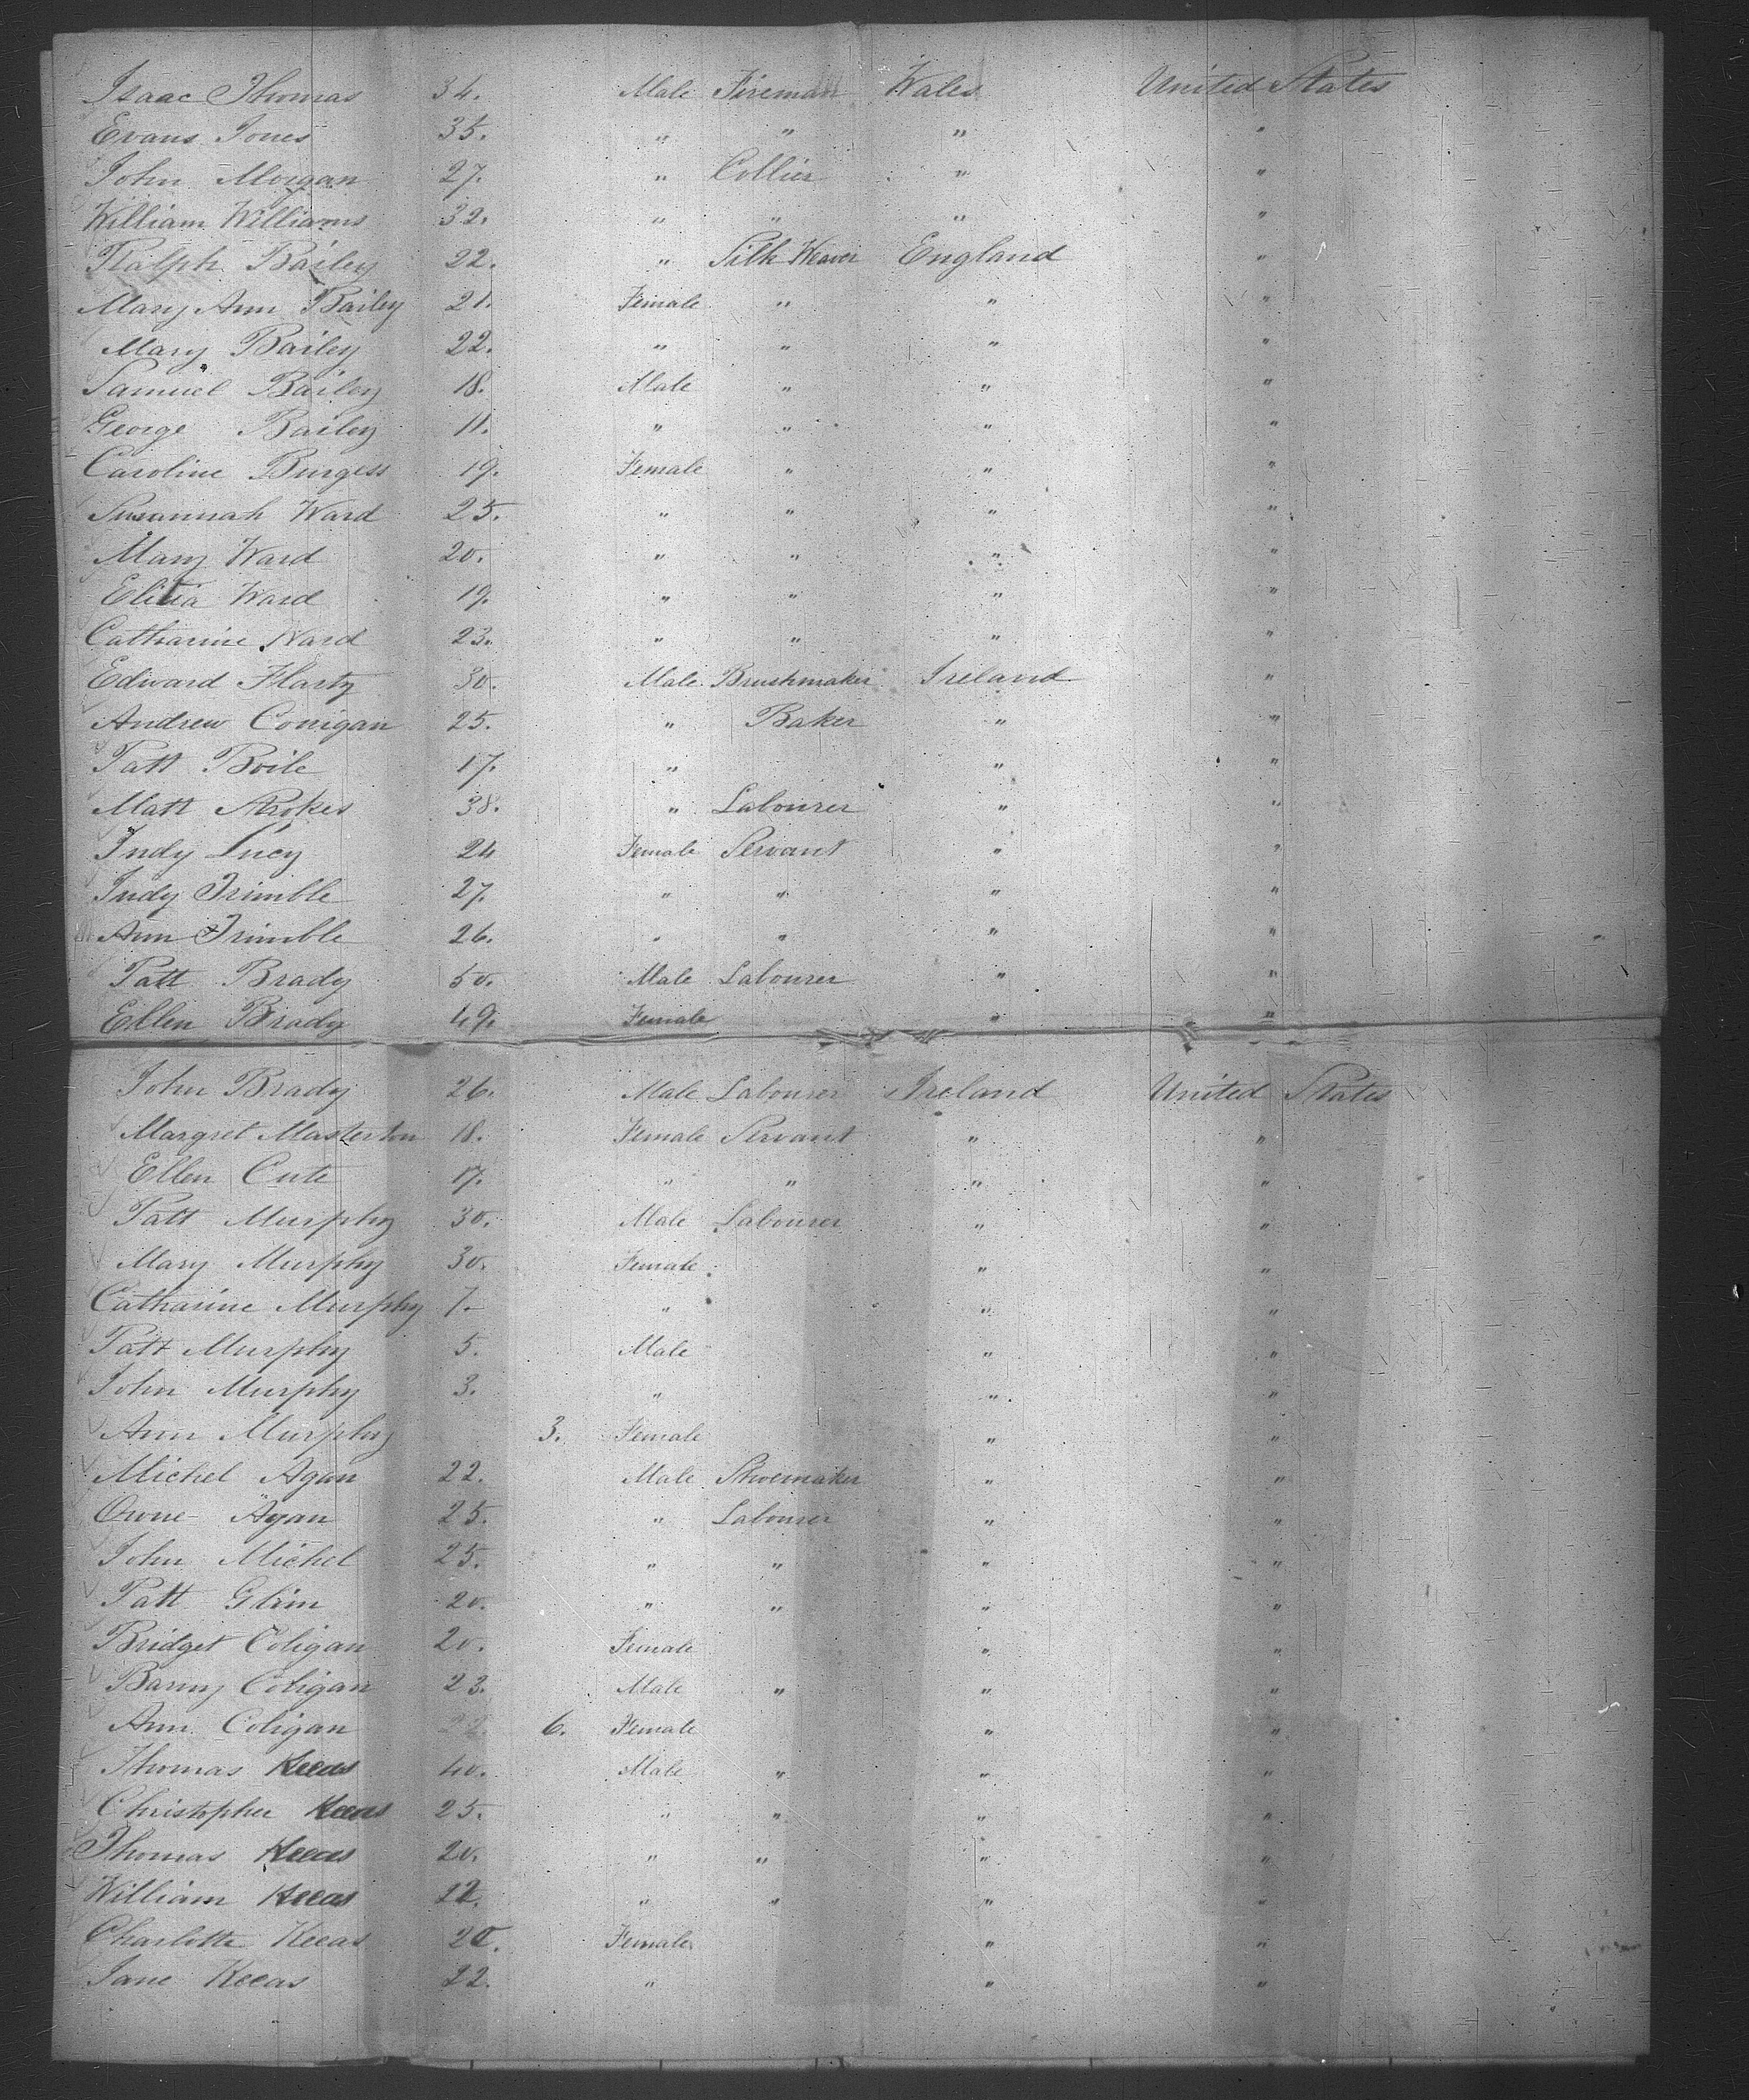 Isaac Thomas 34. Male Fireman Wales United States
Evans Jones 35. " " " "
John Morgan 27. " Collier " "
William Williams 32. " " " "
Ralph Bailey 22. " Silk Weaver England "
Mary Ann Bailey 21. Female " " "
Mary Bailey 22. " " " "
Samuel Bailey 18. Male " " "
George Bailey 11. " " " "
Caroline Burgess 19. Female " " "
Susannah Ward 25. " " " "
Mary Ward 20. " " " "
Elitia Ward 19. " " " "
Catharine Ward 23. " " " "
Edward Harty 30. Male Brushmaker Ireland "
Andrew Conigan 25. " Baker " "
Patt Boile 17. " " "
Matt Stokes 38. " Labourer " "
Judy Lucy 24 Female Servant " "
Judy Trimble 27. " " " "
Ann Trimble 26. " " " "
Patt Brady 50. Male Labourer " "
Ellen Brady 49. Female " "
John Brady 26. Male Labourer Ireland United States
Margret Masterton 18. Female Servant " "
Ellen Cute 17. " " " "
Patt Murphy 30. Male Labourer " "
Mary Murphy 30. Female " "
Catharine Murphy 7. " " "
Patt Murphy 5. Male " "
John Murphy 3. " " "
Ann Murphy 3. Female " "
Michel Agan 22. Male Shoemaker " "
Owne Agan 25. " Labourer " "
John Michel 25. " " " "
Patt Glinn 20. " " " "
Bridget Coligan 20. Female " "
Barny Coligan 23. Male " " "
Ann Coligan 6. Female " "
Thomas Keeas 40. Male " " "
Christopher Keeas 25. " " " "
Thomas Keeas 20. " " " "
William Keeas " " " "
Charlotte Keeas 20. Female " "
Jane Keeas 22. " " "